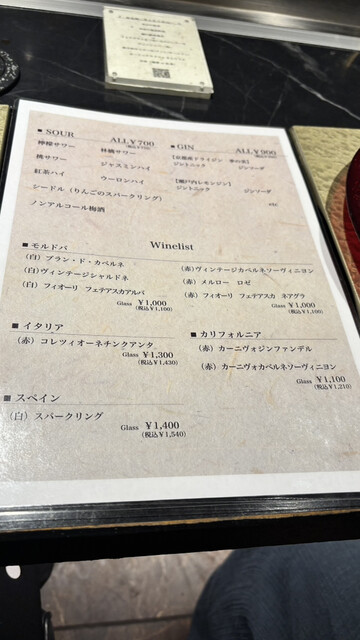 ■ SOUR ALL￥700
檸檬サワー 林檎サワー
桃サワー ジャスミンハイ
紅茶ハイ ウーロンハイ
シードル（りんごのスパークリング）
ノンアルコール梅酒
■ GIN ALL￥900
ジントニック ジンソーダ
【瀬戸内レモンジン】
ジントニック ジンソーダ
etc
Winelist
■ モルドバ
（白）ブラン・ド・カベルネ
（白）ヴィンテージシャルドネ
（白）フィオーリ フェテアスカアルバ
Glass ￥1,000
(税込￥1,100)
（赤）ヴィンテージカベルネソーヴィニヨン
（赤）メルロー ロゼ
（赤）フィオーリ フェテアスカ ネアグラ
Glass ￥1,000
(税込￥1,100)
■ イタリア
（赤）コレツィオーネチンクアンタ
Glass ￥1,300
(税込￥1,430)
■ カリフォルニア
（赤）カーニヴォジンファンデル
（赤）カーニヴォカベルネソーヴィニヨン
Glass ￥1,100
(税込￥1,210)
■ スペイン
（白）スパークリング
Glass ￥1,400
(税込￥1,540)